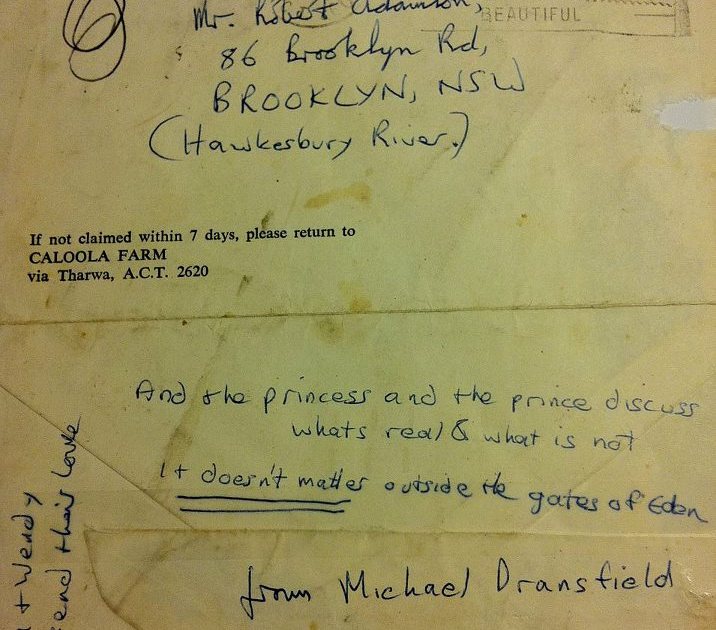 Mr. Robert Adamson,
BEAUTIFUL
86 Brooklyn Rd,
BROOKLYN, NSW
(Hawkesbury River.)
If not claimed within 7 days, please return to
CALOOLA FARM
via Tharwa, A.C.T. 2620
And the princess and the prince discuss
whats real & what is not
It doesn't matter outside the gates of Eden
from Michael Dransfield
+ Wendy
send their love